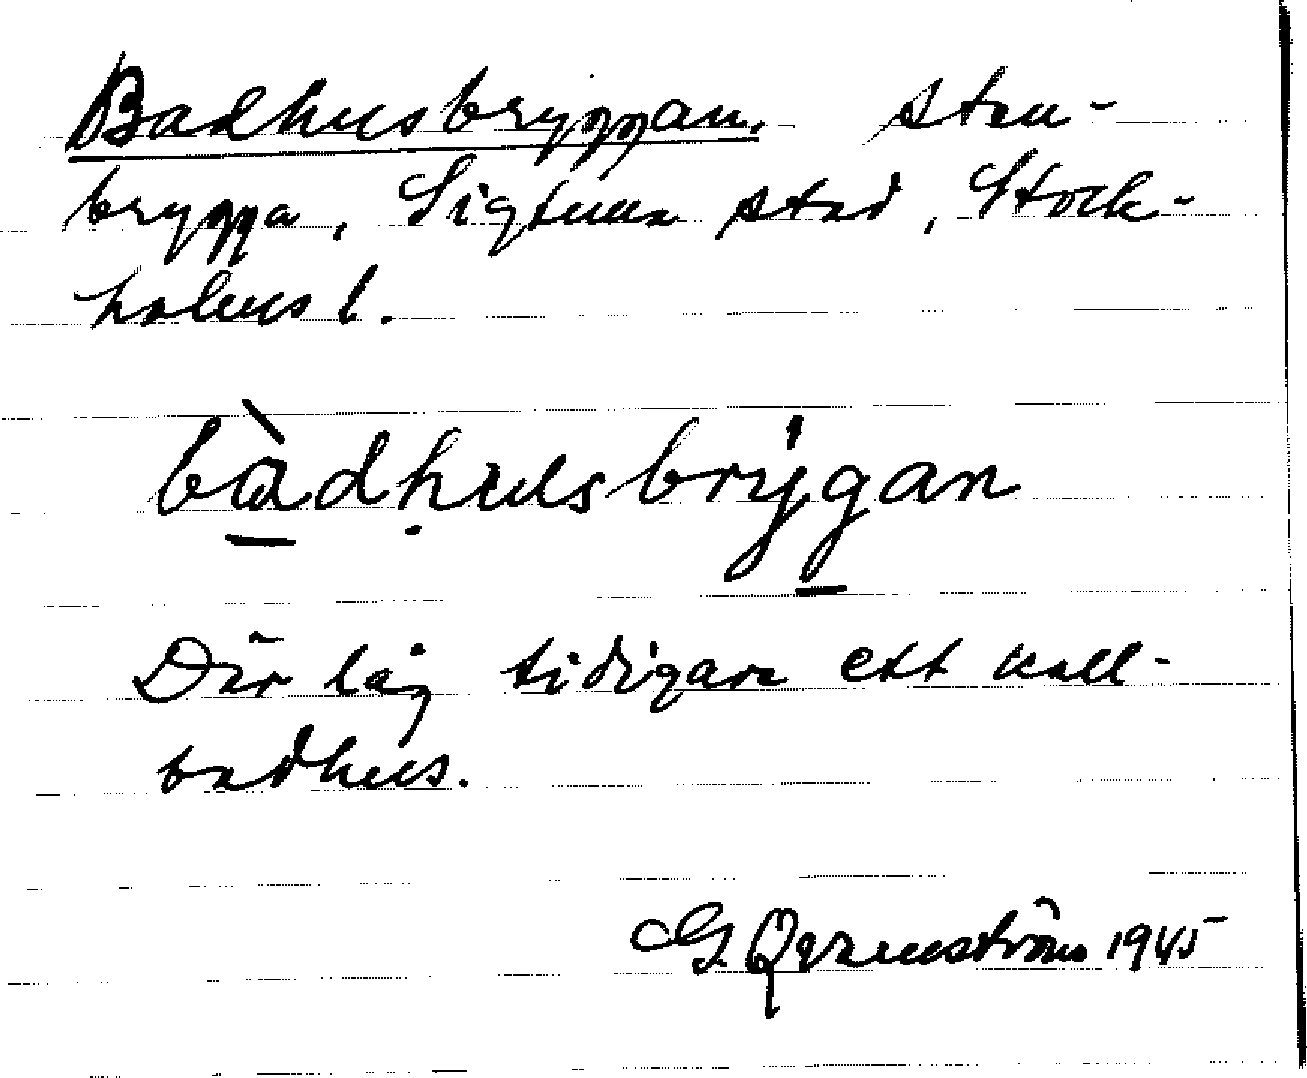 Badhusbryggan, sten-
brygga, Sigtuna stad, Stock-
holms l.
bàdḥusbry̍gan
Där låg tidigare ett kall-
badhus.
G. Qvarnström 1945